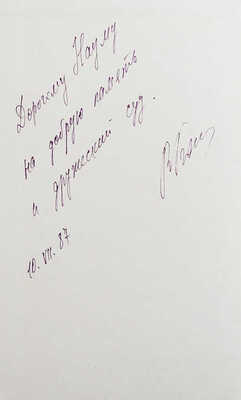 Дорогому Науму
на добрую память
и дружеский суд.
10.VII.87